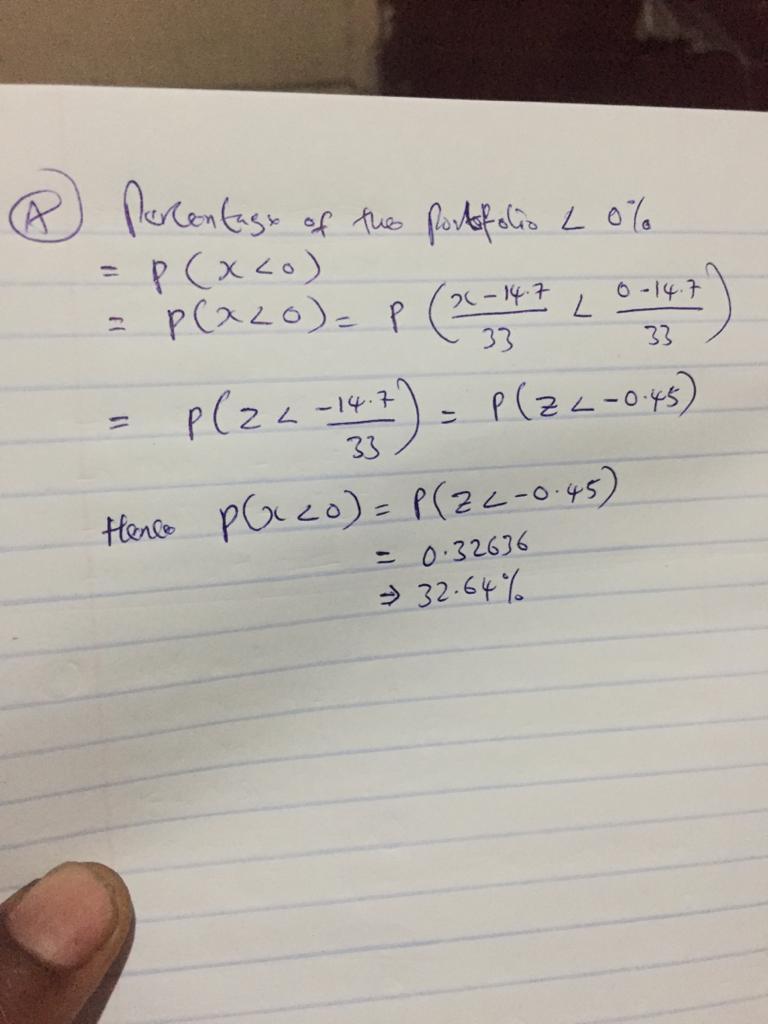 (A) Percentage of the Portfolio < 0%
= P(x<0)
= P(x<0) = P((x-14.7)/33 < (0-14.7)/33)
= P(Z < -14.7/33) = P(Z<-0.45)
Hence P(x<0) = P(Z<-0.45)
= 0.32636
⇒ 32.64%